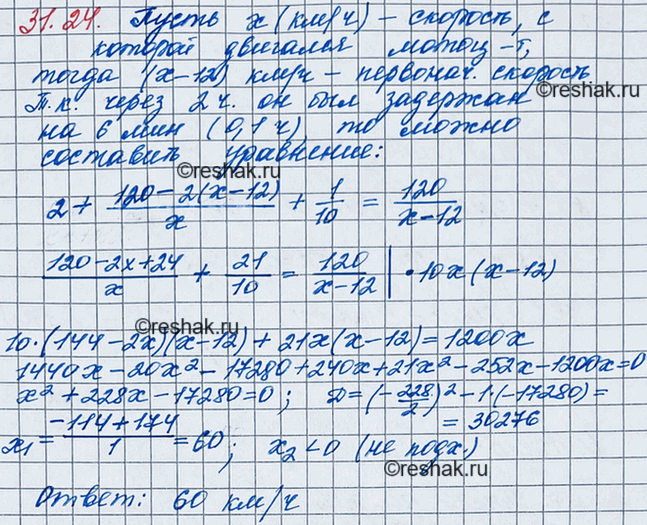 31.24. Пусть x (км/ч) – скорость, с
которой двигался мотоц-т,
тогда (x-12) км/ч – первонач. скорость
Т.к. через 2 ч. он был задержан
на 6 мин (0,1 ч), то можно
составить уравнение:
©reshak.ru
2 + (120-2(x-12))/x + 1/10 = 120/(x-12)
(120-2x+24)/x + 21/10 = 120/(x-12) | · 10x(x-12)
©reshak.ru
10·(144-2x)(x-12)+21x(x-12)=1200x
1440x-20x²-17280+240x+21x²-252x-1200x=0
x²+228x-17280=0; D=(-228/2)²-1·(-17280)=
= 30276
x₁ = (-114+174)/1 = 60; x₂<0 (не подх.)
©reshak.ru
Ответ: 60 км/ч